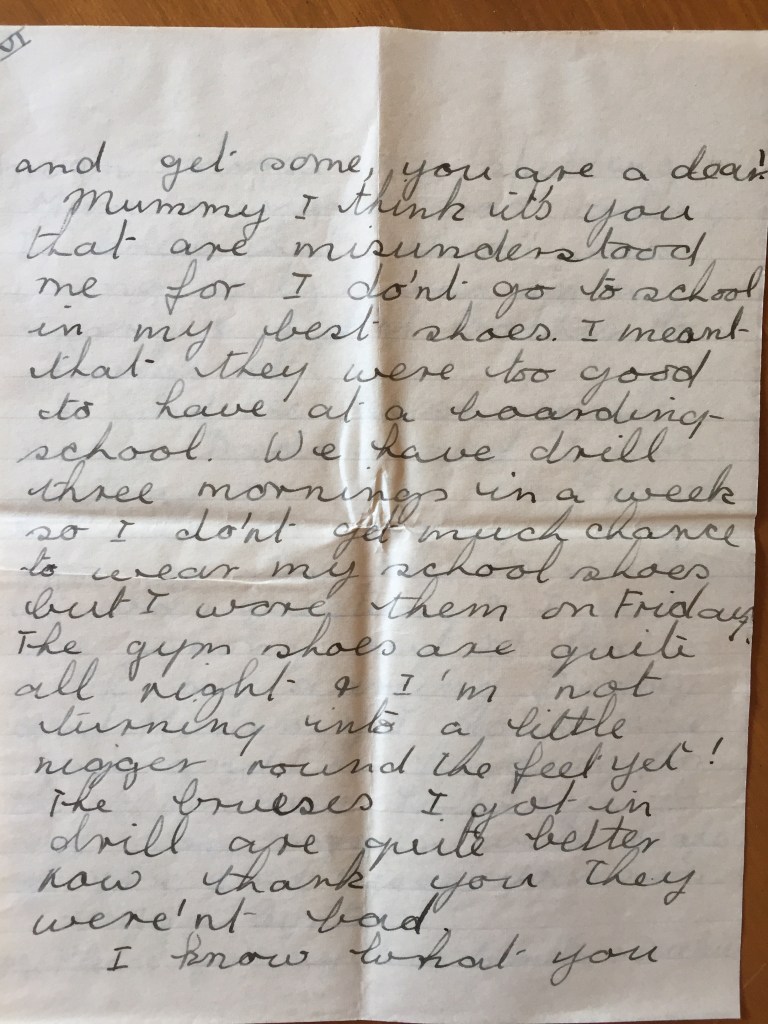 VI
and get some, you are a dear!
Mummy I think it's you
that are misunderstood
me for I do'nt go to school
in my best shoes. I meant
that they were too good
to have at a boarding-
school. We have drill
three mornings in a week
so I do'nt get much chance
to wear my school shoes
but I wore them on Friday.
The gym shoes are quite
all right & I'm not
turning into a little
nigger round the feet yet!
The brueses I got in
drill are quite better
now thank you They
were'nt bad.
I know what you